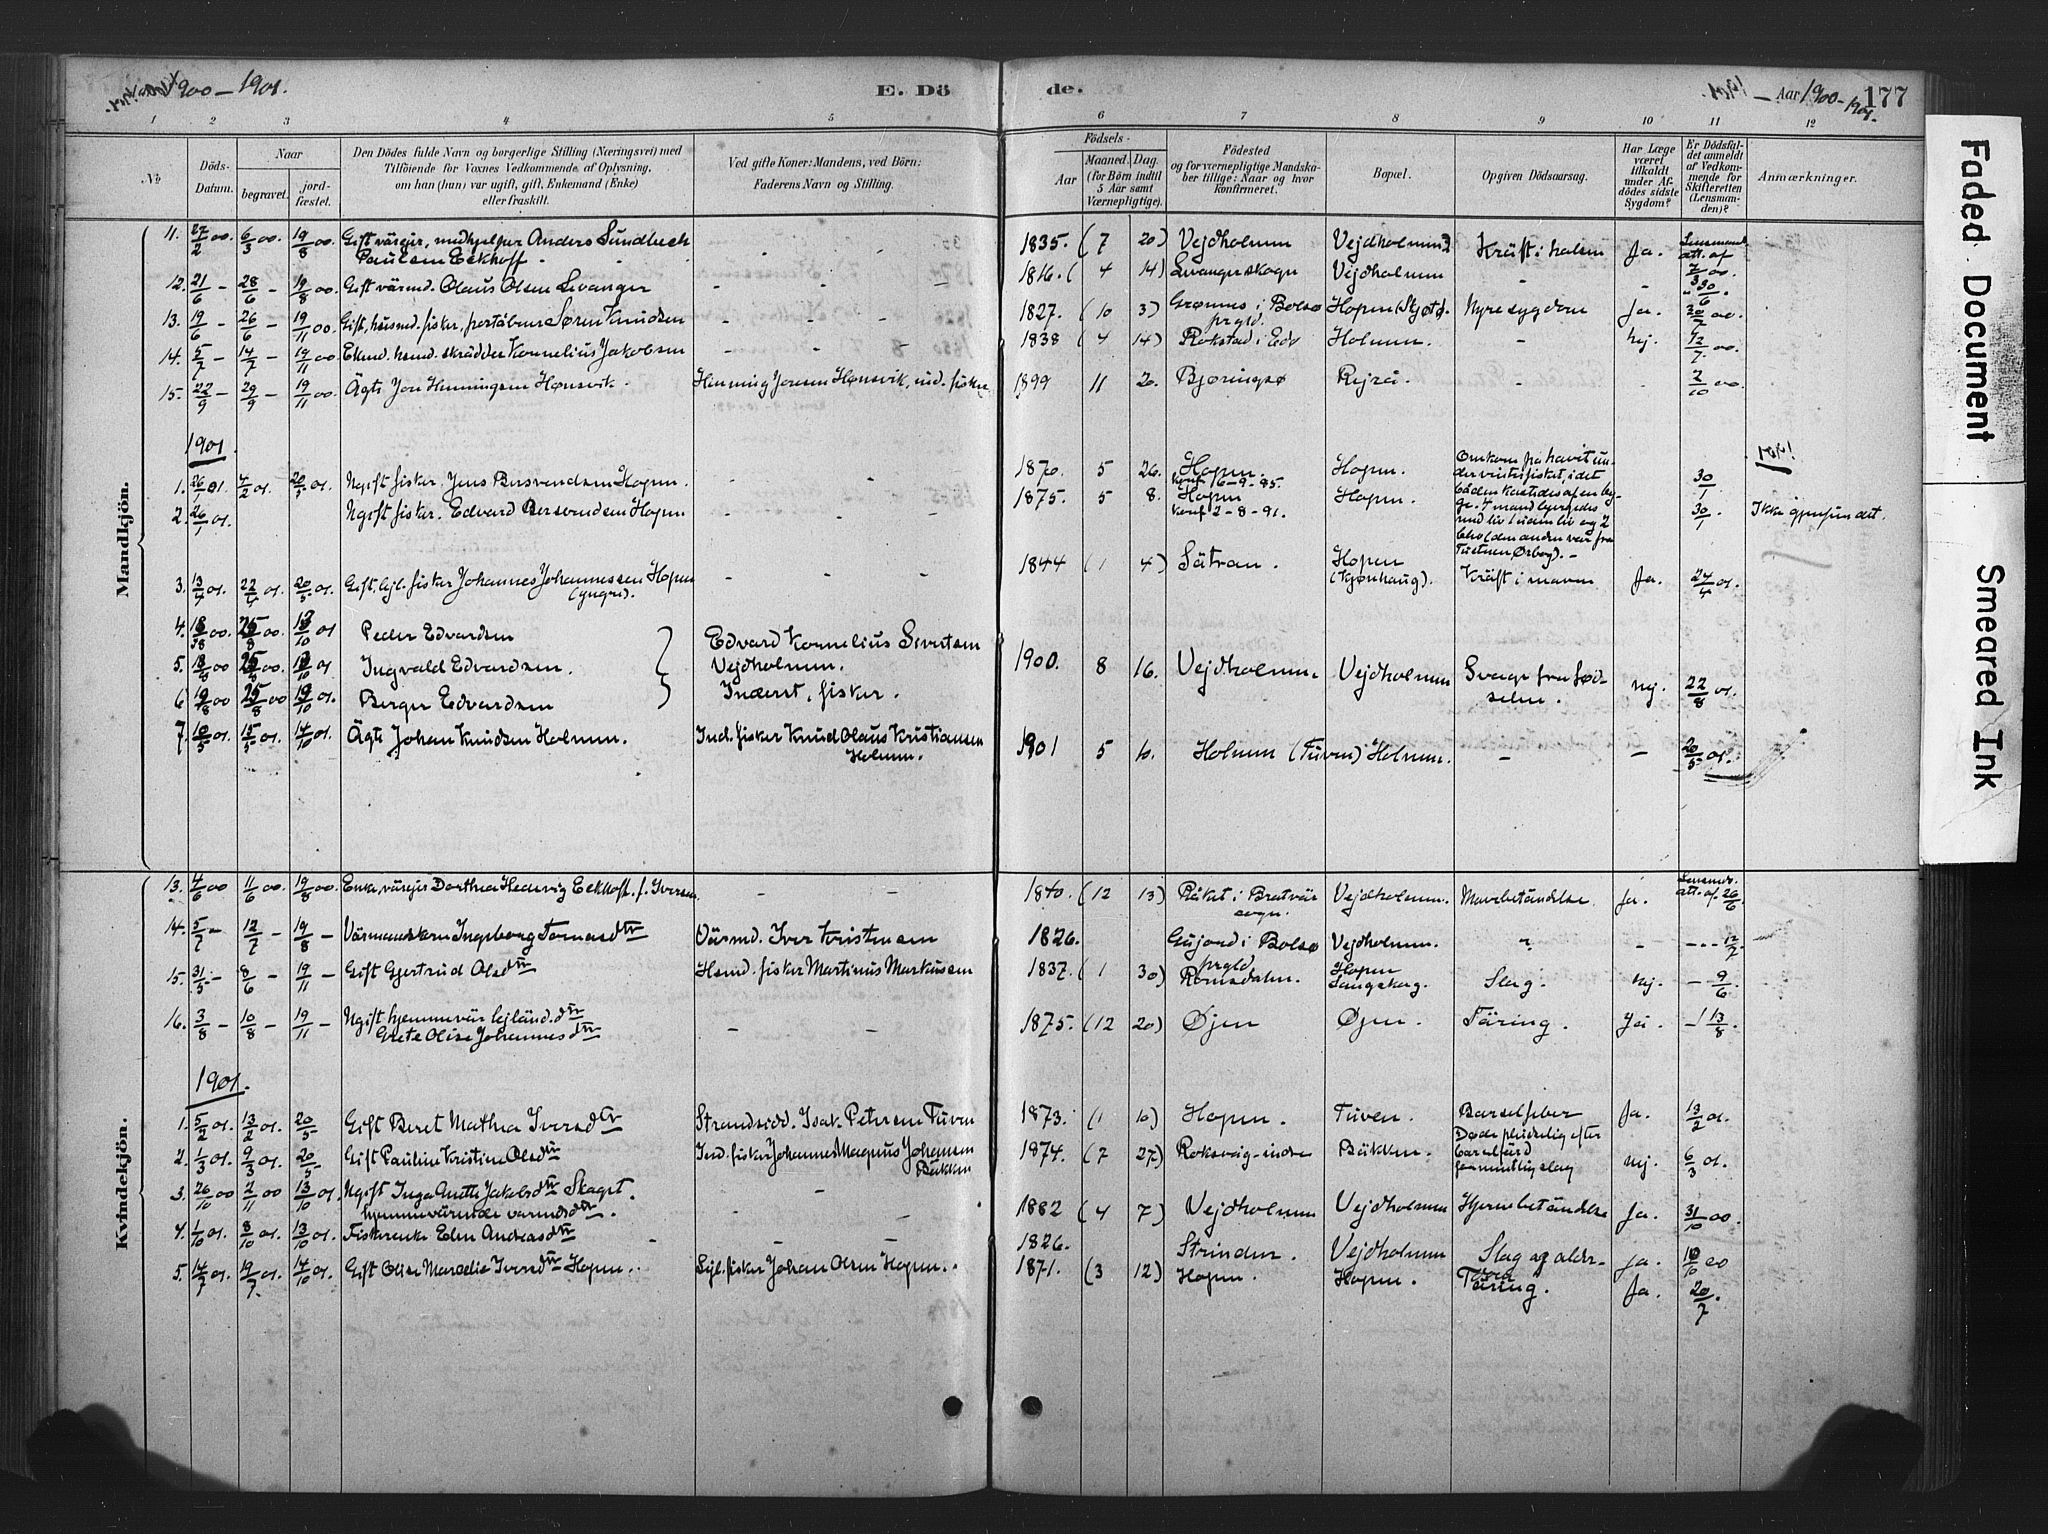 1900 – 1901.
E. Dö
de.
1901. – Aar 1900–1901.
177
1 2 3 4 5 6 7 8 9 10 11 12
№
Döds-Datum.
Naar
begravet.
jord-fæstet.
Den Dödes fulde Navn og borgerlige Stilling (Næringsvei) med
Tilföiende for Voxnes Vedkommende af Oplysning,
om han (hun) var ugift, gift, Enkemand (Enke)
eller fraskilt.
Ved gifte Koner: Mandens, ved Börn:
Faderens Navn og Stilling.
Födsels-
Aar
Maaned. Dag.
(for Börn indtil
5 Aar samt
Værnepligtige).
Födested
og for værnepligtige Mandskaber tillige: Naar og hvor
konfirmeret.
Bopæl.
Opgiven Dödsaarsag.
Har Læge
været
tilkaldt
under Afdödes sidste
Sygdom?
Er Dödsfaldet anmeldt
af Vedkommende for
Skifteretten
(Lensmanden)?
Anmærkninger.
Mandkjön.
11. 27/2 00. 6/3 00. 19/8 00. Gift væreier, medhjelper Anders Sundbech Paulsen Eckhoff. - - 1835. (7 20) Vejdholmen Vejdholmen Kräft i halsen Ja. Lensmand. att. af 7/3 00.
12. 21/6 – 28/6 – 19/8 00. Gift värmd. Olaus Olsen Levanger - - - 1816. (4 14) Levanger skogn Vejdholmen - - 30/6.
13. 19/6 – 26/6 – 19/11 00. Gift, husmd. fisker, Søren Knudsen - - - 1827. (10 3) Grønnes i Bolsø prgld. Hopen (Skjøtø. Nyresygdom Ja. 20/7 00.
14. 5/7 – 14/7 – 19/11 00. Ekmd. husmd. skrädder Kornelius Jakobsen - - - 1838 (4 14) Rokstad i Edø Holmen. - Nej. 12/7 00.
15. 22/9 – 29/9 – 19/11 00. Ägte Jon Henningsen Hønsvik. Henning Jonsen Hønsvik, ind. fisker 1899 11 20. Bjøringsø - - 2/10 00.
1901.
1. 26/1 01. 4/2 01. 20/5 01. Ugift fisker Jens Bersvendsen Hopen. - - 1870 5 26. Hopen. konf. 6-9-85. Hopen. Omkom på havet under vinterfisket, idet båden kastedes af en bylge. 4 mand bjergedes med liv 1 uden liv og 2 beholden anden vei fra Tustnen Ørbog). – 30/1
2. 26/1 01. Ugift fisker. Edvard Bersvendsen Hopen - - - 1875. 5 8. Hopen konf. 2-8-91. Hopen. 30/1. Ikke gjenfundet.
3. 13/4 01. 22/4 01. 20/5 01. Gift. lejl. fisker Johannes Johannessen Hopen (yngre). - - - 1844 (1 4) Sätran. Hopen (Kjønhaug). Kräft i maven Ja. 24/4 01.
4. 18/8 00. 25/8 00. 13/10 01 Peder Edvardsen
5. 18/8 00 25/8 00. 13/10 01 Ingvald Edvardsen.
6 19/8 00 25/8 00 13/10 01. Berger Edvardsen
Edvard Kornelius Sivertsen Vejdholmen. Inderst, fisker. 1900. 8 16. Vejdholmen. Vejdholmen Svage fra fødselen. Nej. 22/8 01.
7. 10/5 01. 15/5 01. 14/10 01. Ägte Johan Knudsen Holmen. Ind. fisker Knud Olaus Kristiansen Holmen. 1901 5 10. Holmen (Tuven) Holmen. - - 20/5 01.
Kvindekjön.
13. 4/6 00 11/6 00. 19/8 00. Enke, väreier Dorthea Hedevig Eckhoff. f. Iversen. - - 1840. (12 13) Råket i Bratvär sogn. Vejdholmen. Mavebetändelse. Ja. Lensmd. att. af. 26/6.
14. 5/7 – 12/7 – 19/8 – Värmandskone Ingeborg Tomasdtr Värmd. Iver Kristensen 1826. i Bolsø prgld Vejdholmen. - - 12/7
15. 31/5 – 8/6 – 19/11 – Gift Gjertrud Olsdtr Husmd. fisker Martinus Markussen 1837. (1 30) Romsdalen. Hopen Langskog. Slag. Nej. – 9/6.
16. 3/8 – 10/8 – 19/11 – Ugift hjemmevär. lejländ. dtr Grete Olise Johannesdtr - - 1875. (12 20) Øjen Øjen. Täring. Ja – 13/8.
1901.
1. 5/2 01. 13/2 01. 20/5 Gift Beret Mathea Iversdtr Strandsidd. Isak Petersen Tuven 1873. (1 10) Hopen. Tuven. Barselfeber Ja. 13/2 01.
2. 1/3 01. 9/3 01. 20/5. Gift Pauline Kristine Olsdtr Ind. fisker Johannes Magnus Johansen Bäkken 1874. (7 27) Roksvåg-indre Bäkken. Døde pludselig efter barselfärd formentlig slag Nej. 6/3 01.
3. 26/10 00 2/11 00 13/10 01. Ugift Inga Anette Jakobsdtr Skaget. hjemmevärende varmdsdtr. - - 1882 (4 7) Vejdholmen Vejdholmen Hjernebetändelse Ja. 31/10 00.
4. 1/10 01. 8/10 01. 13/10 01. Fiskerenke Elen Andreasdtr - - - 1826. Strinden. Vejdholmen Slag og alder- Ja. 10/10 00
5. 14/7 01. 19/7 01. 14/10 01. Gift Olise Marselie Iversdtr Hopen. Lejl. fisker Johan Olsen Hopen. 1871. (3 12) Hopen. Hopen. Täring. Ja. 20/7.
Faded Document
Smeared Ink